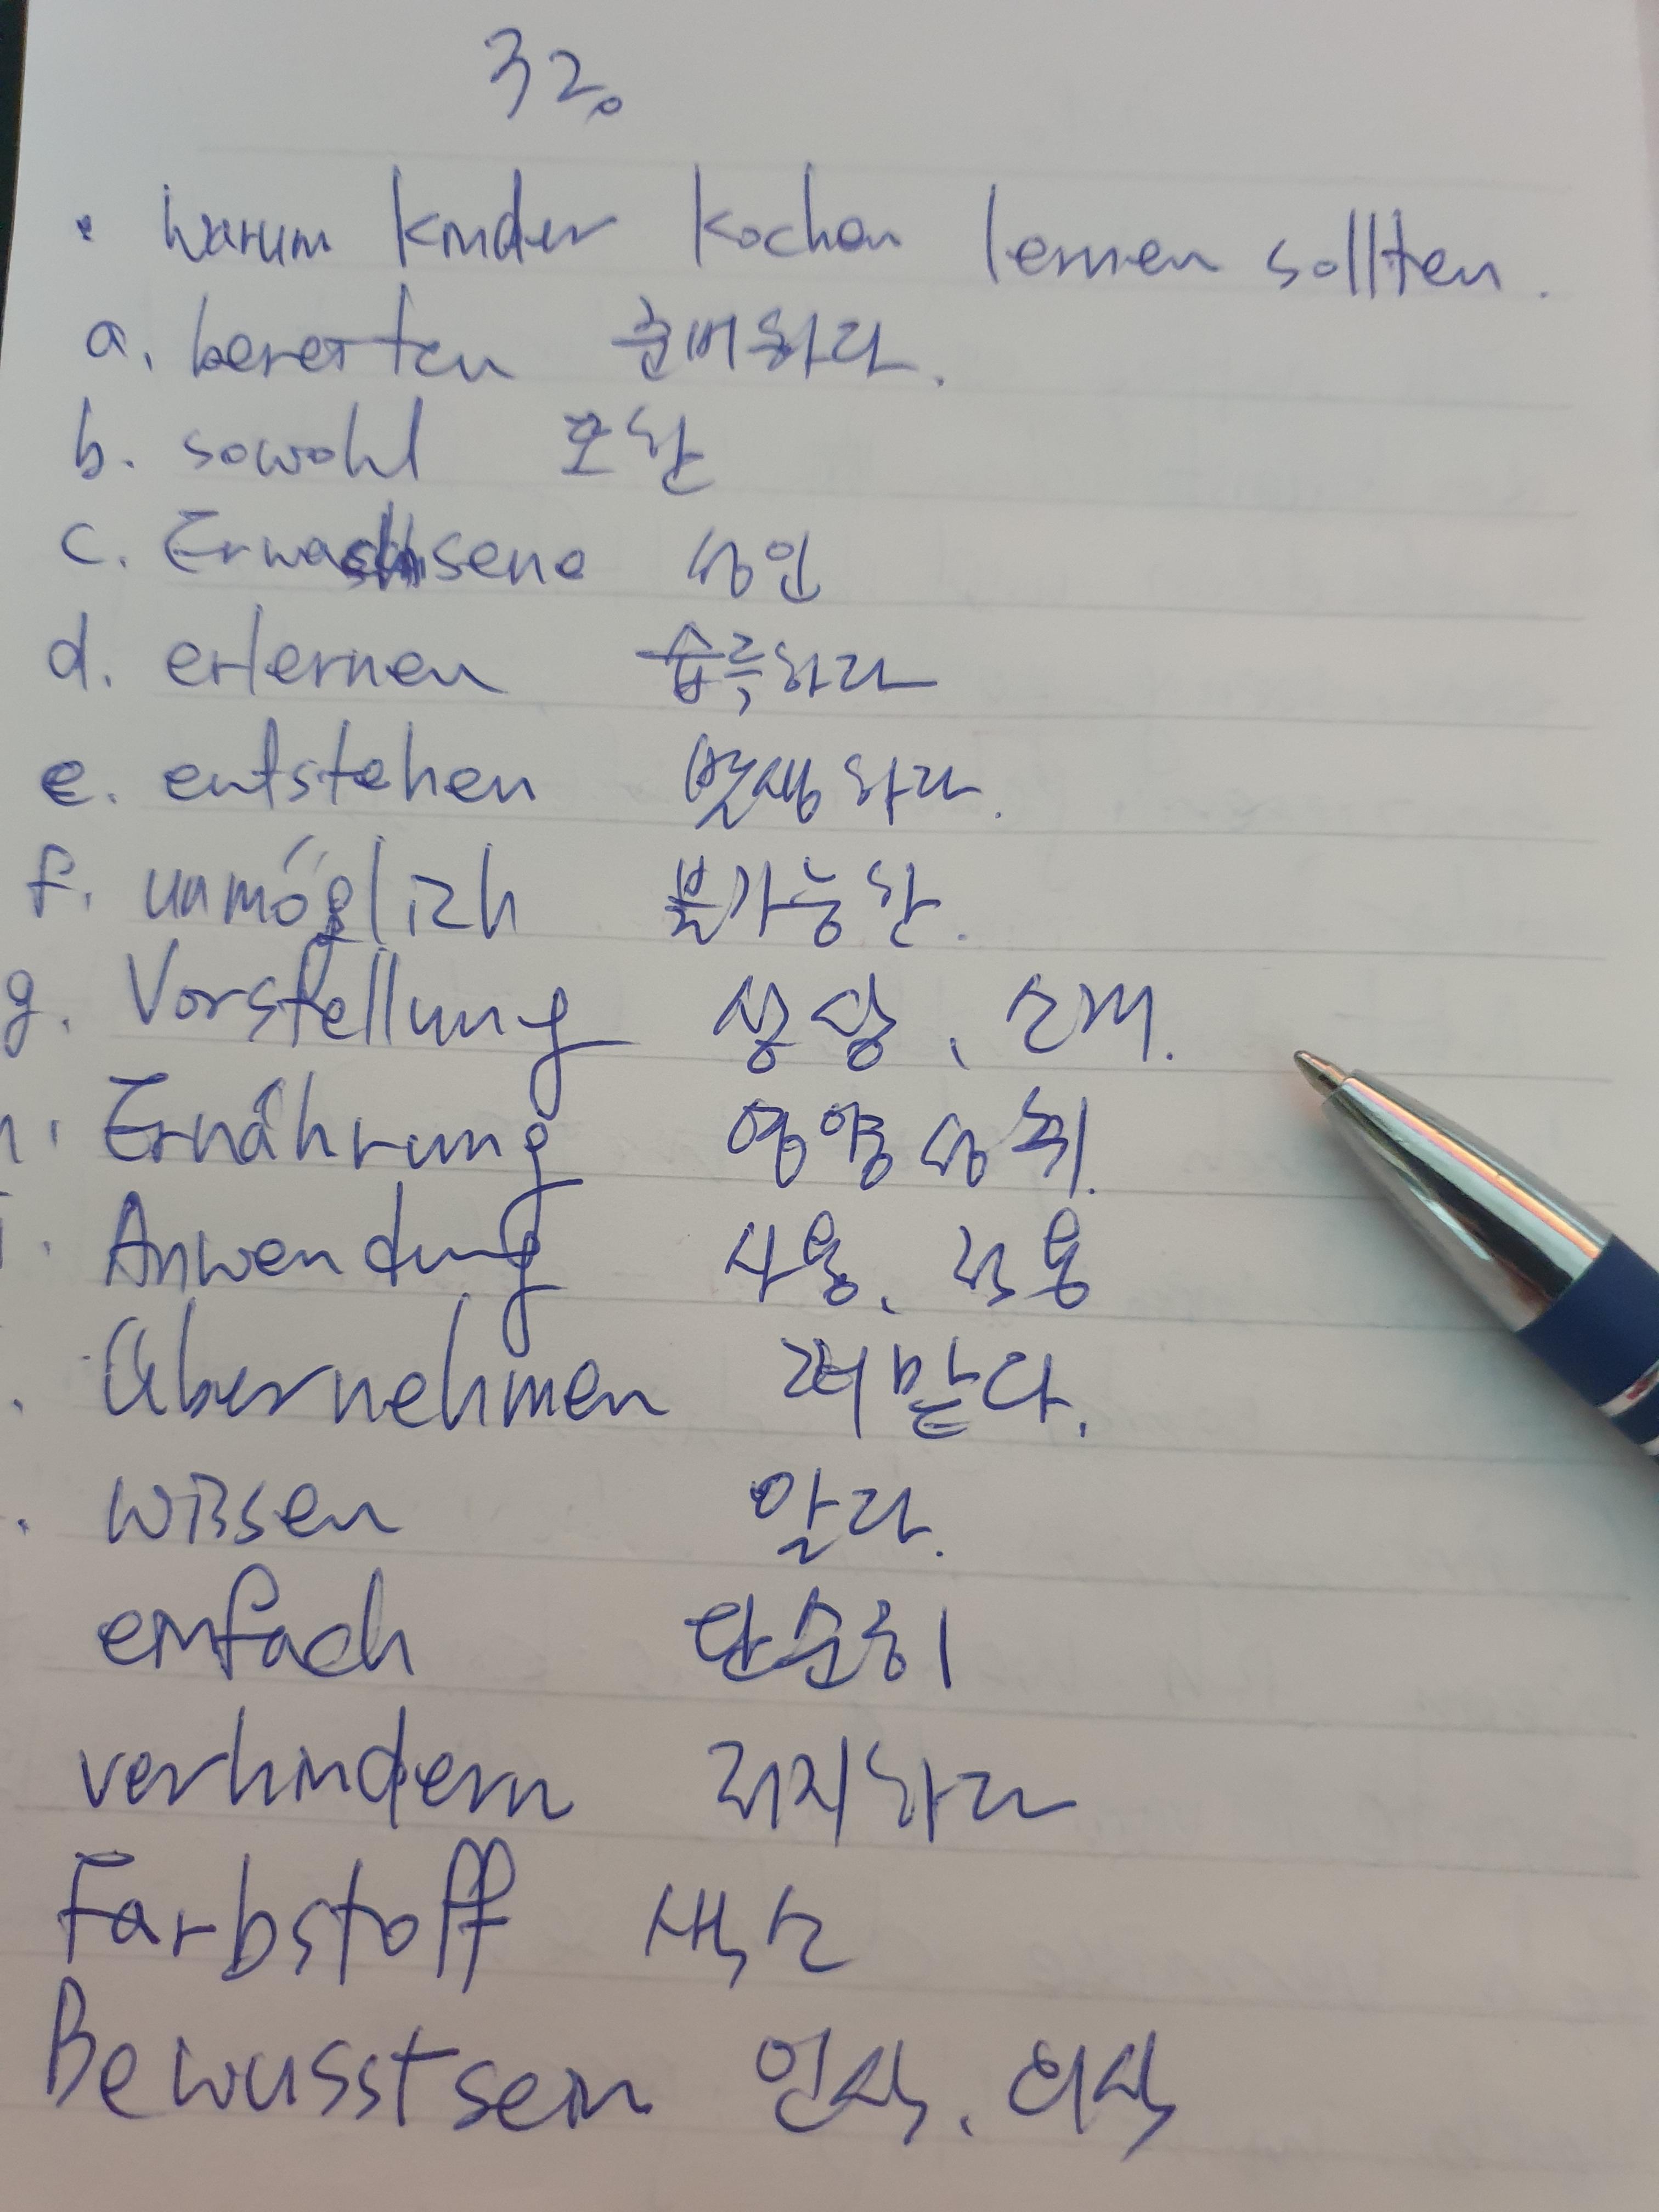 32.
• Warum Kinder kochen lernen sollten.
a. bereiten 준비하다.
b. sowohl 포함
c. Erwachsene 성인
d. erlernen 습득하다
e. entstehen 발생하다.
f. unmöglich 불가능한.
g. Vorstellung 상상, 소개.
h. Ernährung 영양섭취.
i. Anwendung 사용, 적용
. Übernehmen 떠맡다.
. wissen 알다.
einfach 단순히
verhindern 저지하다
Farbstoff 색소
Bewusstsein 인식, 의식